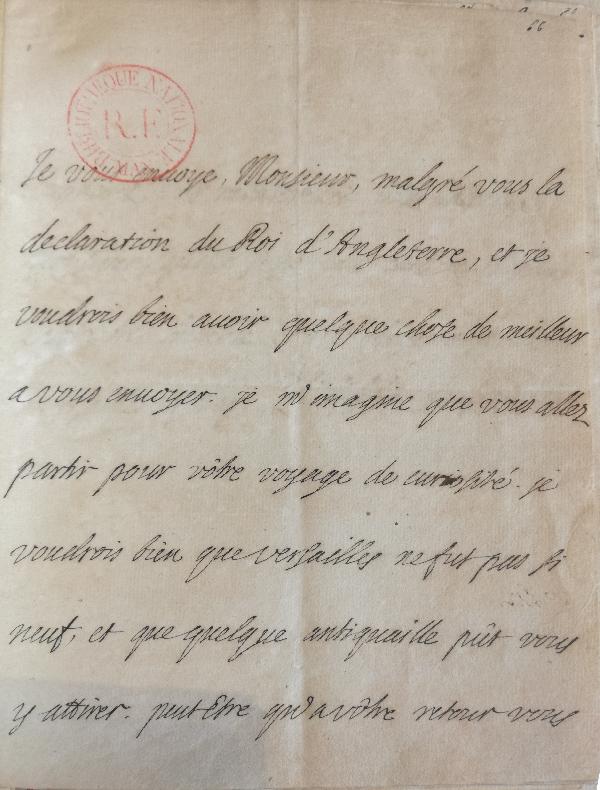 66
BIBLIOTHEQUE NATIONALE
R.F.
Je vous envoye, Monsieur, malgré vous la
declaration du Roi d'Angleterre, et je
voudrois bien avoir quelque chose de meilleur
a vous envoyer. je m'imagine que vous allez
partir pour vôtre voyage de curiosité. je
voudrois bien que versailles ne fut pas si
neuf, et que quelque antiquaille pût vous
y attirer. peut Etre qu'a vôtre retour vous